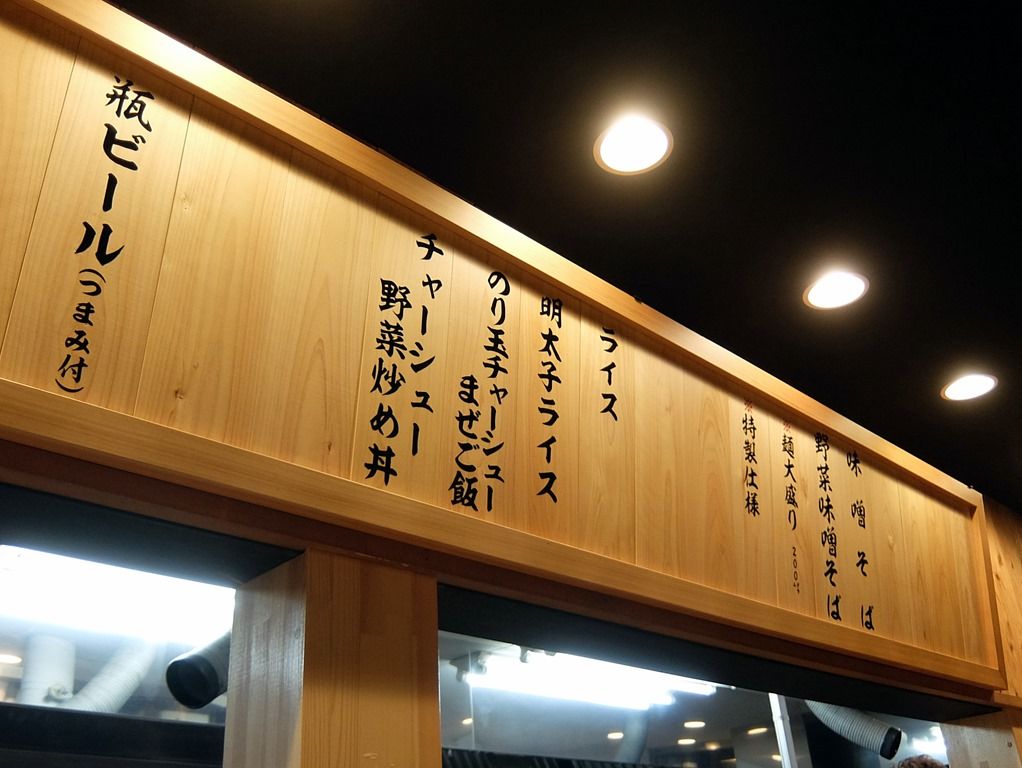 味噌そば
野菜味噌そば
※麺大盛り 200g
※特製仕様
ライス
明太子ライス
のり玉チャーシュー
まぜご飯
チャーシュー
野菜炒め丼
瓶ビール(つまみ付)